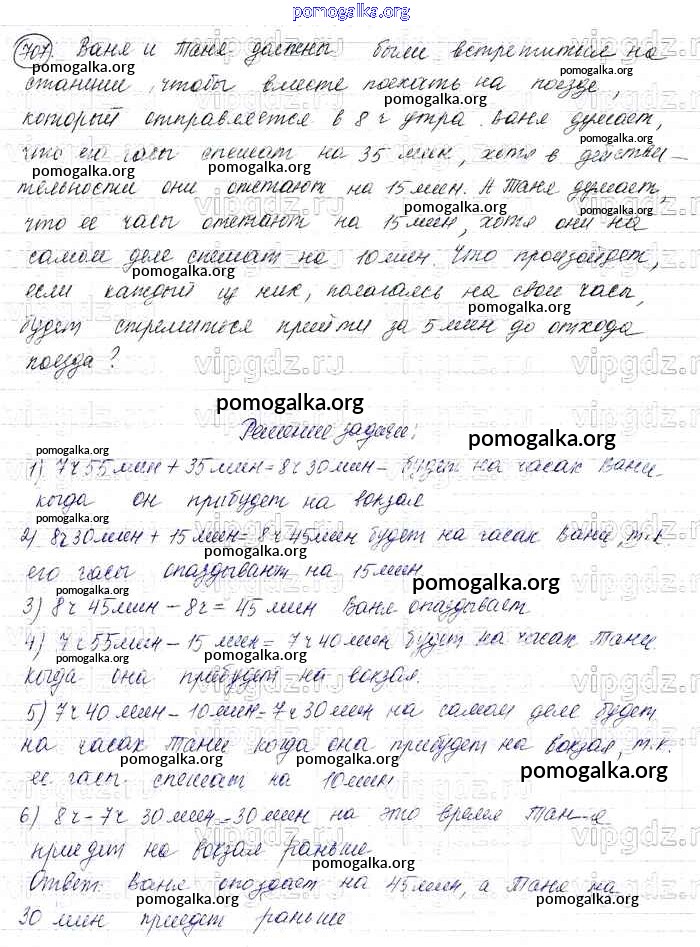 pomogalka.org
707) Ваня и Таня должны были встретиться на
станции, чтобы вместе поехать на поезде,
который отправляется в 8 ч утра. Ваня думает,
что его часы спешат на 35 мин, хотя в действи-
тельности они отстают на 15 мин. А Таня думает,
что ее часы отстают на 15 мин, хотя они на
самом деле спешат на 10 мин. Что произойдет,
если каждый из них, полагаясь на свои часы,
будет стремиться прийти за 5 мин до отхода
поезда?
pomogalka.org
Решение задачи:
1) 7ч 55мин + 35мин = 8ч 30мин - будет на часах Вани
когда он прибудет на вокзал
2) 8ч 30мин + 15мин = 8ч 45мин будет на часах Вани, т.к.
его часы опаздывают на 15мин
3) 8ч 45мин - 8ч = 45 мин Ваня опаздывает
4) 7ч 55мин - 15 мин = 7ч 40мин будет на часах Тани
когда она прибудет на вокзал.
5) 7ч 40мин - 10мин = 7ч 30мин на самом деле будет
на часах Тани когда она прибудет на вокзал, т.к.
ее часы спешат на 10мин
6) 8ч - 7ч 30мин = 30мин на это время Тан-я
приедит на вокзал раньше
Ответ: Ваня опоздает на 45мин, а Таня на
30 мин приедет раньше